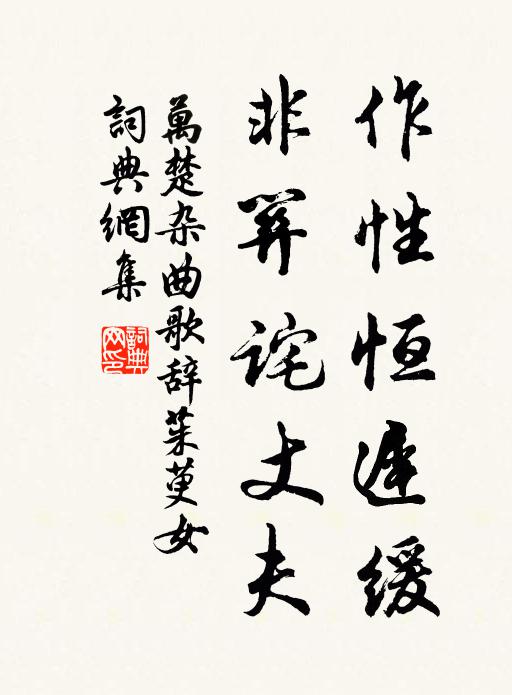 作性恒遲緩
非關詫丈夫
萬楚杂曲歌辞茱萸女
詞典網集
詞典网印